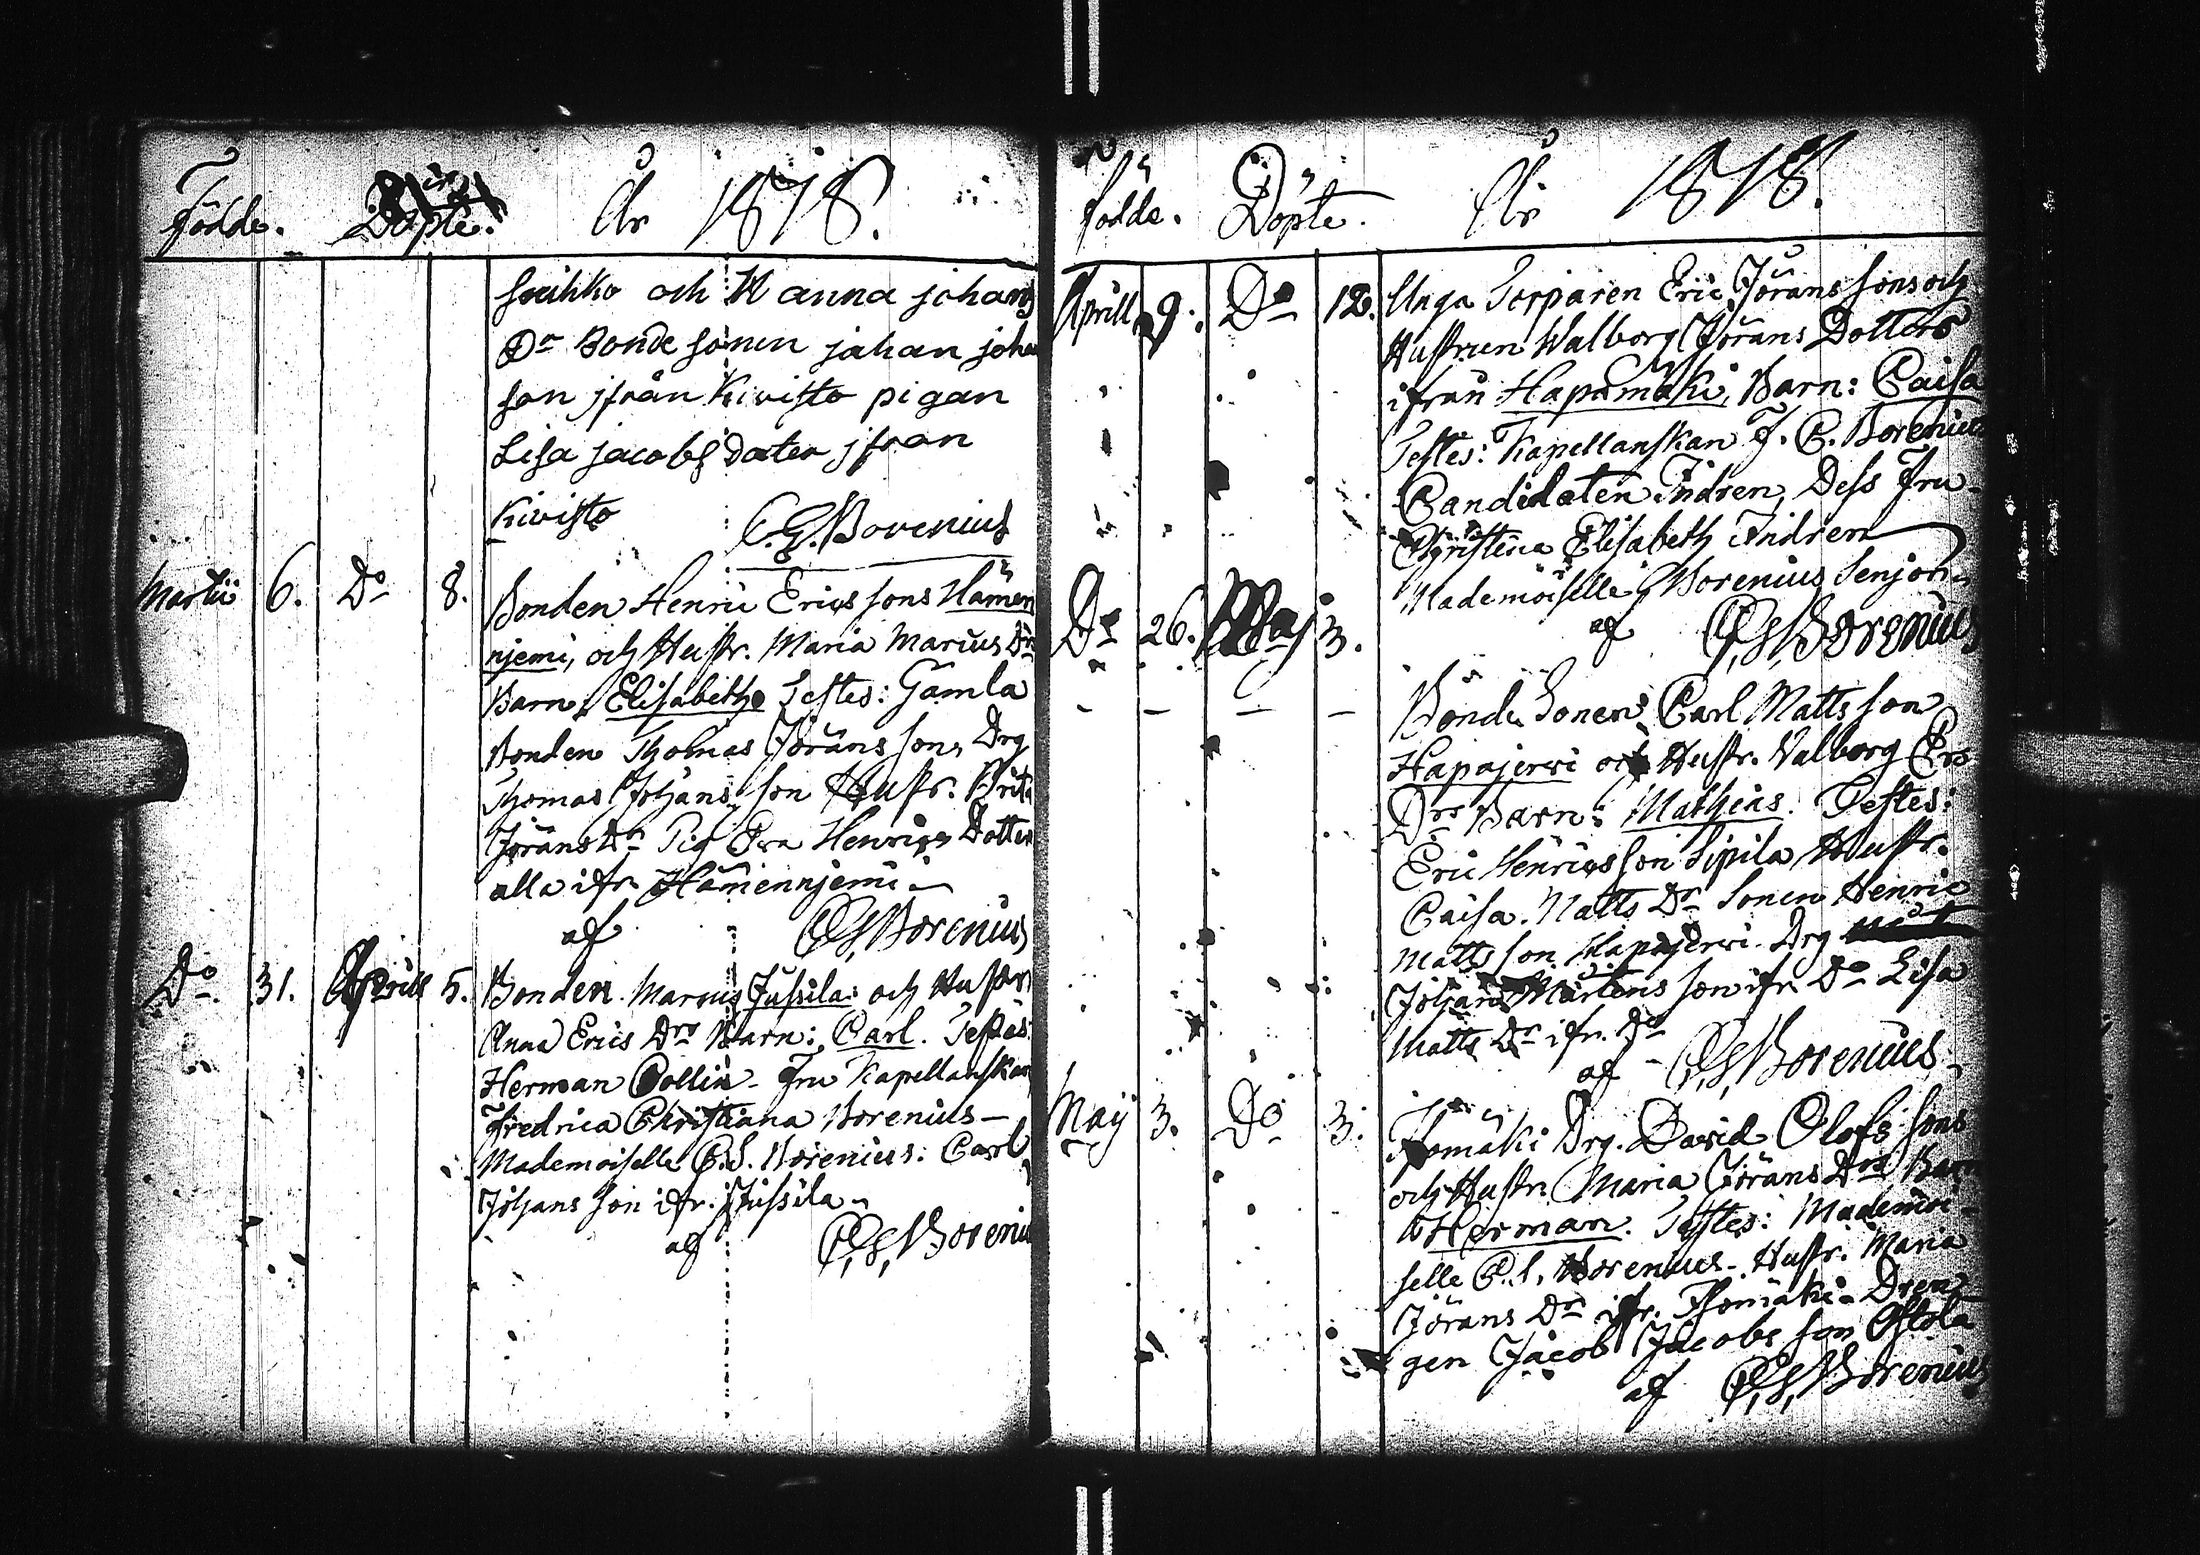 Födde. Döpte. År 1818.
och H anna johans
Dr Bonde sonen johan joha
son jfrån Kivisto pigan
Lisa jacobs dater jfran
Kivisto C. G. Borenius
Martii 6. Do 8. Bonden Henric Erics sons Hämen
njemi, och Hustr. Maria Marcus Drs
Barn, Elisabeth Testes: Gamla
Bonden Thomas Jörans son, Drg
Thomas Johans son Hustr. Brita
Jörans Dr Pig Eva Henrics Dotter
alla ifr Hämennjemi
af C. G. Borenius
Do 31. Aprill 5. Bonden Marcus Jussila och Hustr
Anna Erics Drs Barn: Carl. Testes:
Herman Collin Fru Kapellanskan
Fredrica Christiana Borenius
Mademoiselle C. S. Borenius: Carl
Johans son ifr. Jussila
af C. G. Boreniu
Födde. Döpte. År 1818.
Aprill 9. Do 12. Unga Torparen Eric Jörans sons och
Hustrun Walborg Jörans Dotters
ifrån Hapamäki, Barn: Caisa
Testes: Kapellanskan F. C. Borenius
Candidaten Indren, Dess Fru
Christina Elisabeth Indren
Mademoiselle Borenius Senjor
af C. G. Borenius
Do 26. Maj 3. Bonde Sonens Carl Matts son
Hapajerwi och Hustr. Valborg Ers
Drs Barn: Mathias. Testes:
Eric Henrics son Sipila Hustr.
Caisa Matts Dr Sonen Henric
Matts son Hapajerwi Drg
Johan Mårtens son ifr Do Lisa
Matts Dr ifr. Do
af C. G. Borenius
Maij 3. Do 3. Drg. David Olofs sons
och Hustr. Maria Jörans Drs Barn
Herman. Testes: Mademoi-
selle C. S. Borenius Hustr. Maria
Jörans Dr ifr. Dren
gen Jacob Jacobs son
af C. G. Borenius